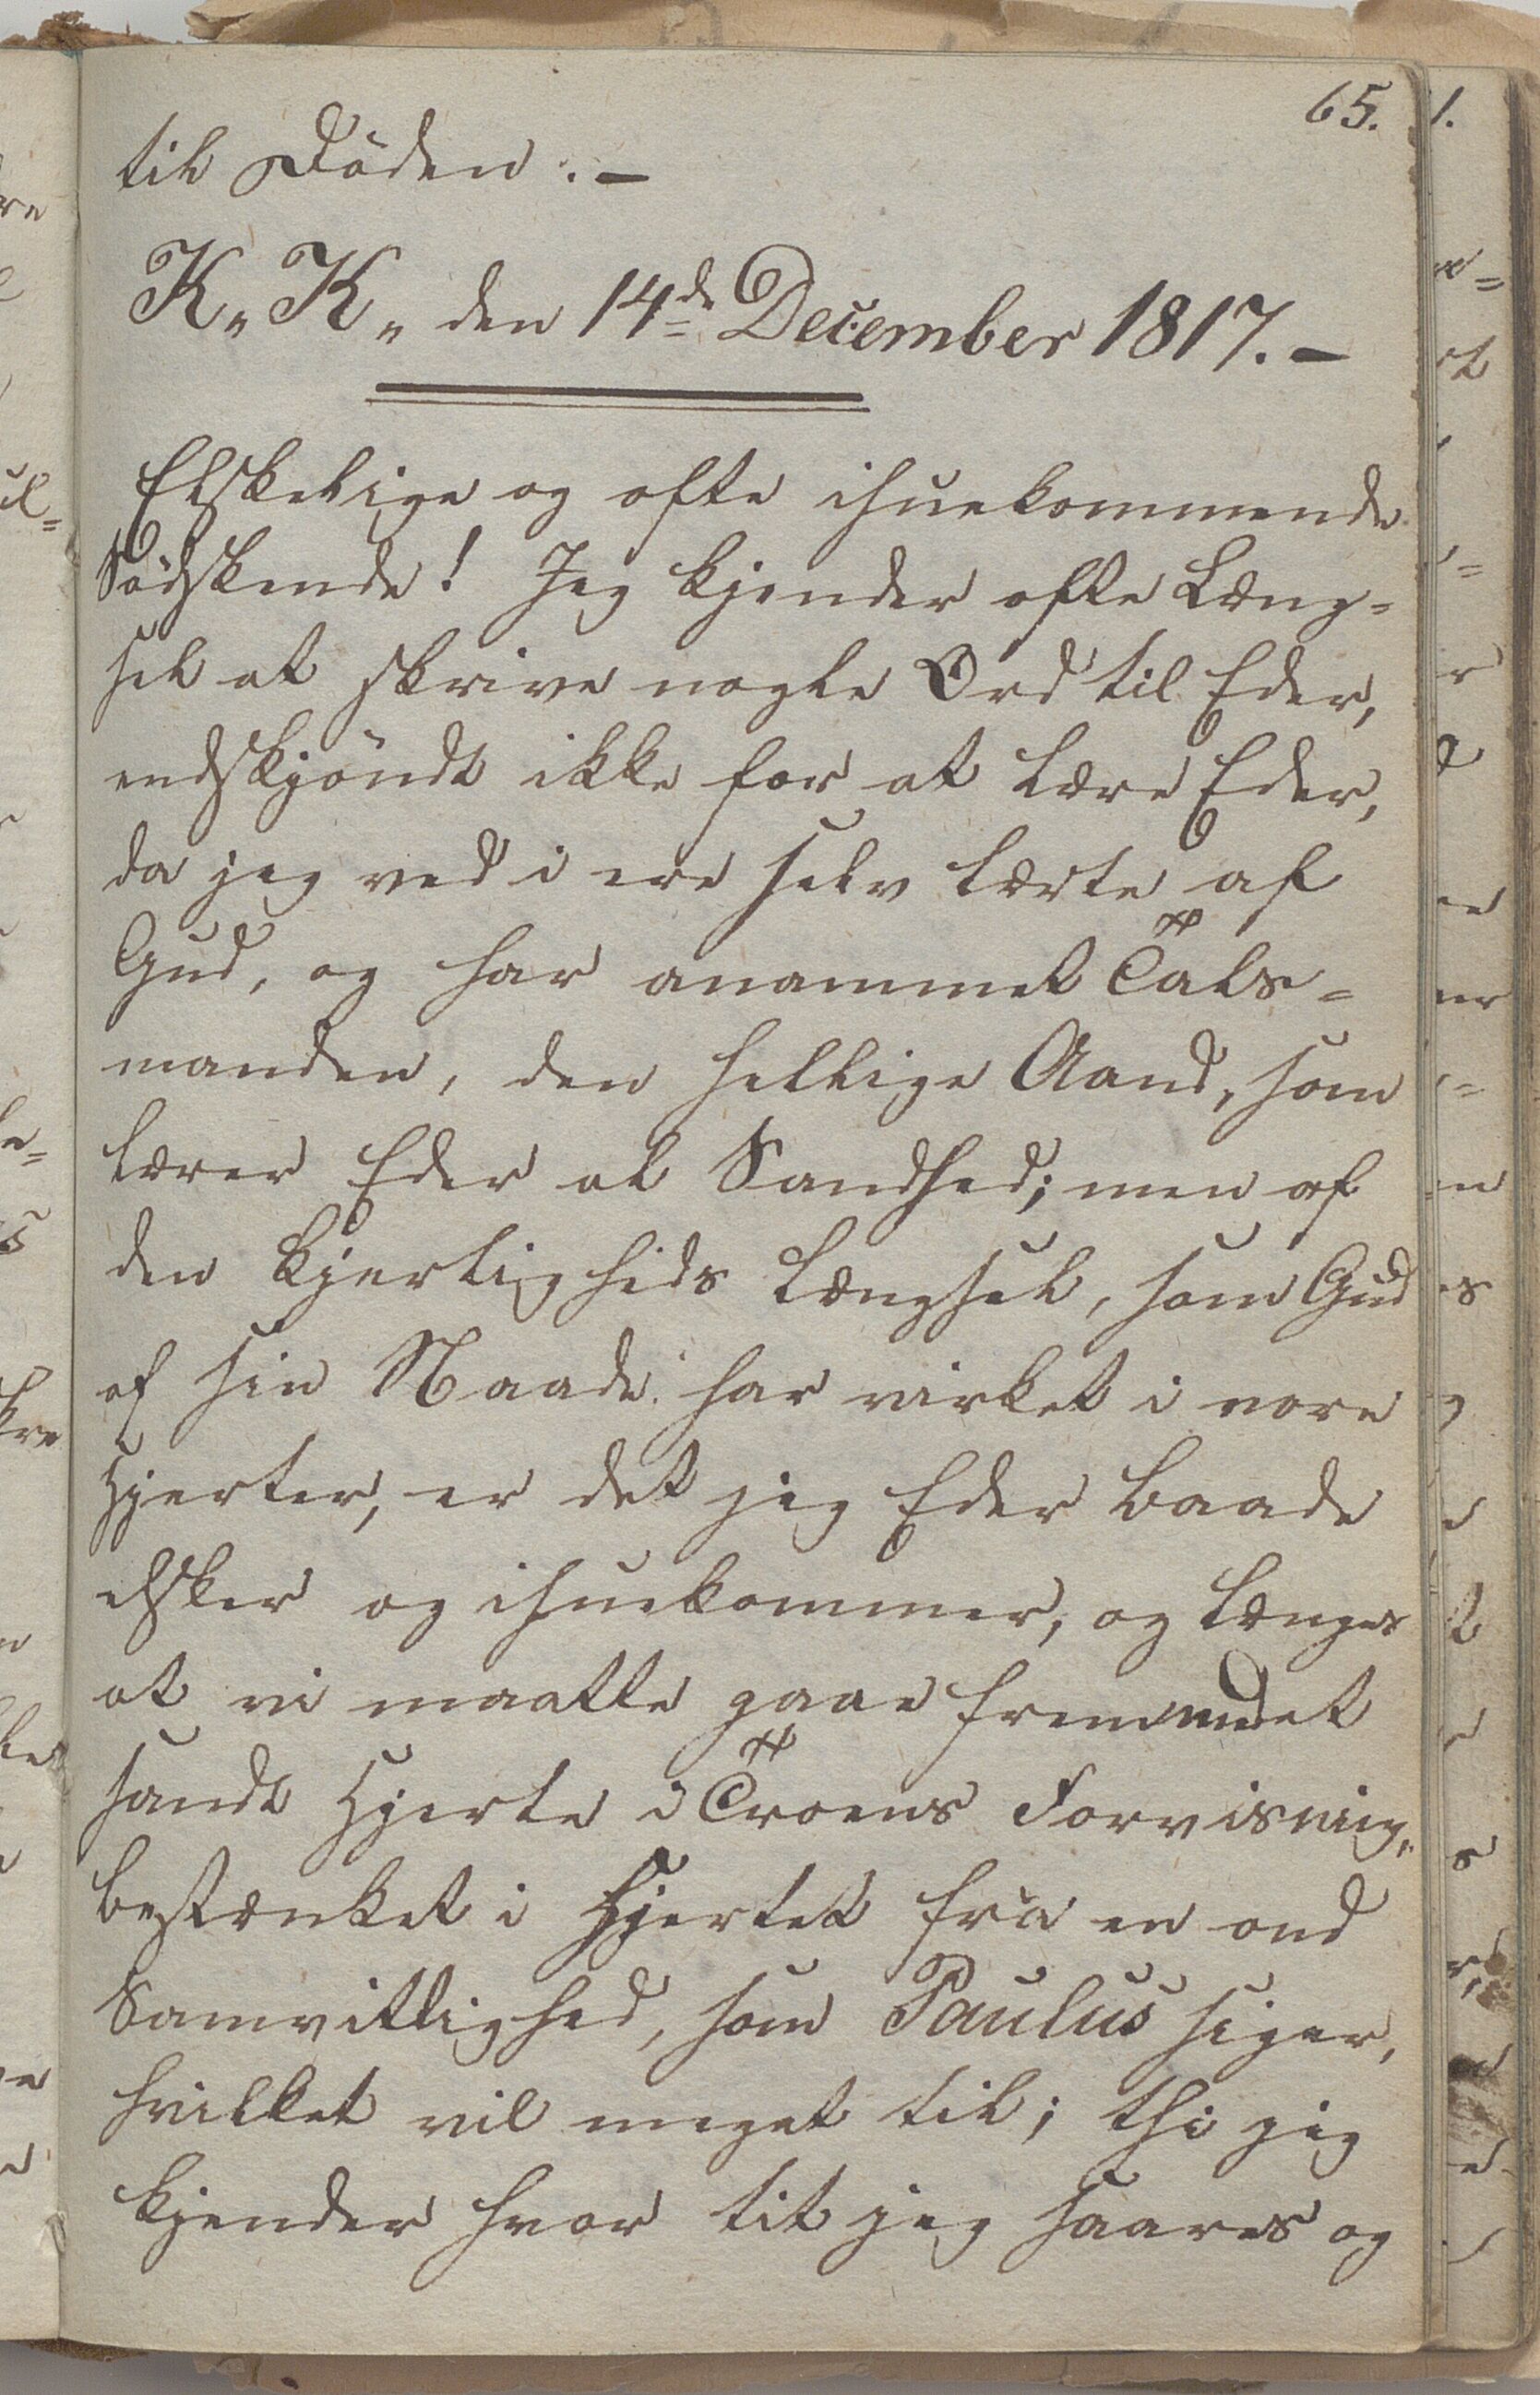 65.
til Döden. –
K„ K„ den 14de December 1817. –
Elskelige og ofte ihuekommende
Södskende! Jeg kjender ofte Læng=
sel at skrive nogle Ord til Eder,
endskjöndt ikke for at lære Eder,
da jeg ved i ere selv lærte af
Gud, og har anammet Tals=
manden, den hellige Aand, som
lærer Eder al Sandhed; men af
den Kjerligheds Længsel, som Gud
af sin Naade har virket i vore
Hjerter, er det jeg Eder baade
elsker og ihuekommer, og længes
at vi maatte gaae frem med et
sandt Hjerte i Troens Forvisning,
bestænket i Hjertet fra en ond
Samvittighed, som Paulus siger,
hvilket vil meget til; thi jeg
kjender hvor tit jeg saares og